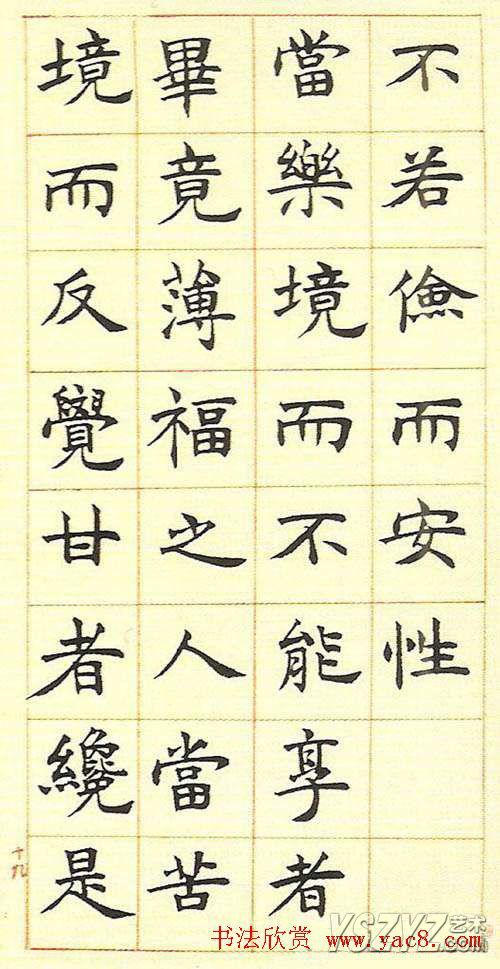 不若儉而安性
當樂境而不能享者
畢竟薄福之人當苦
境而反覺甘者纔是
十九
YSZYZ艺术
书法欣赏 www.yac8.com